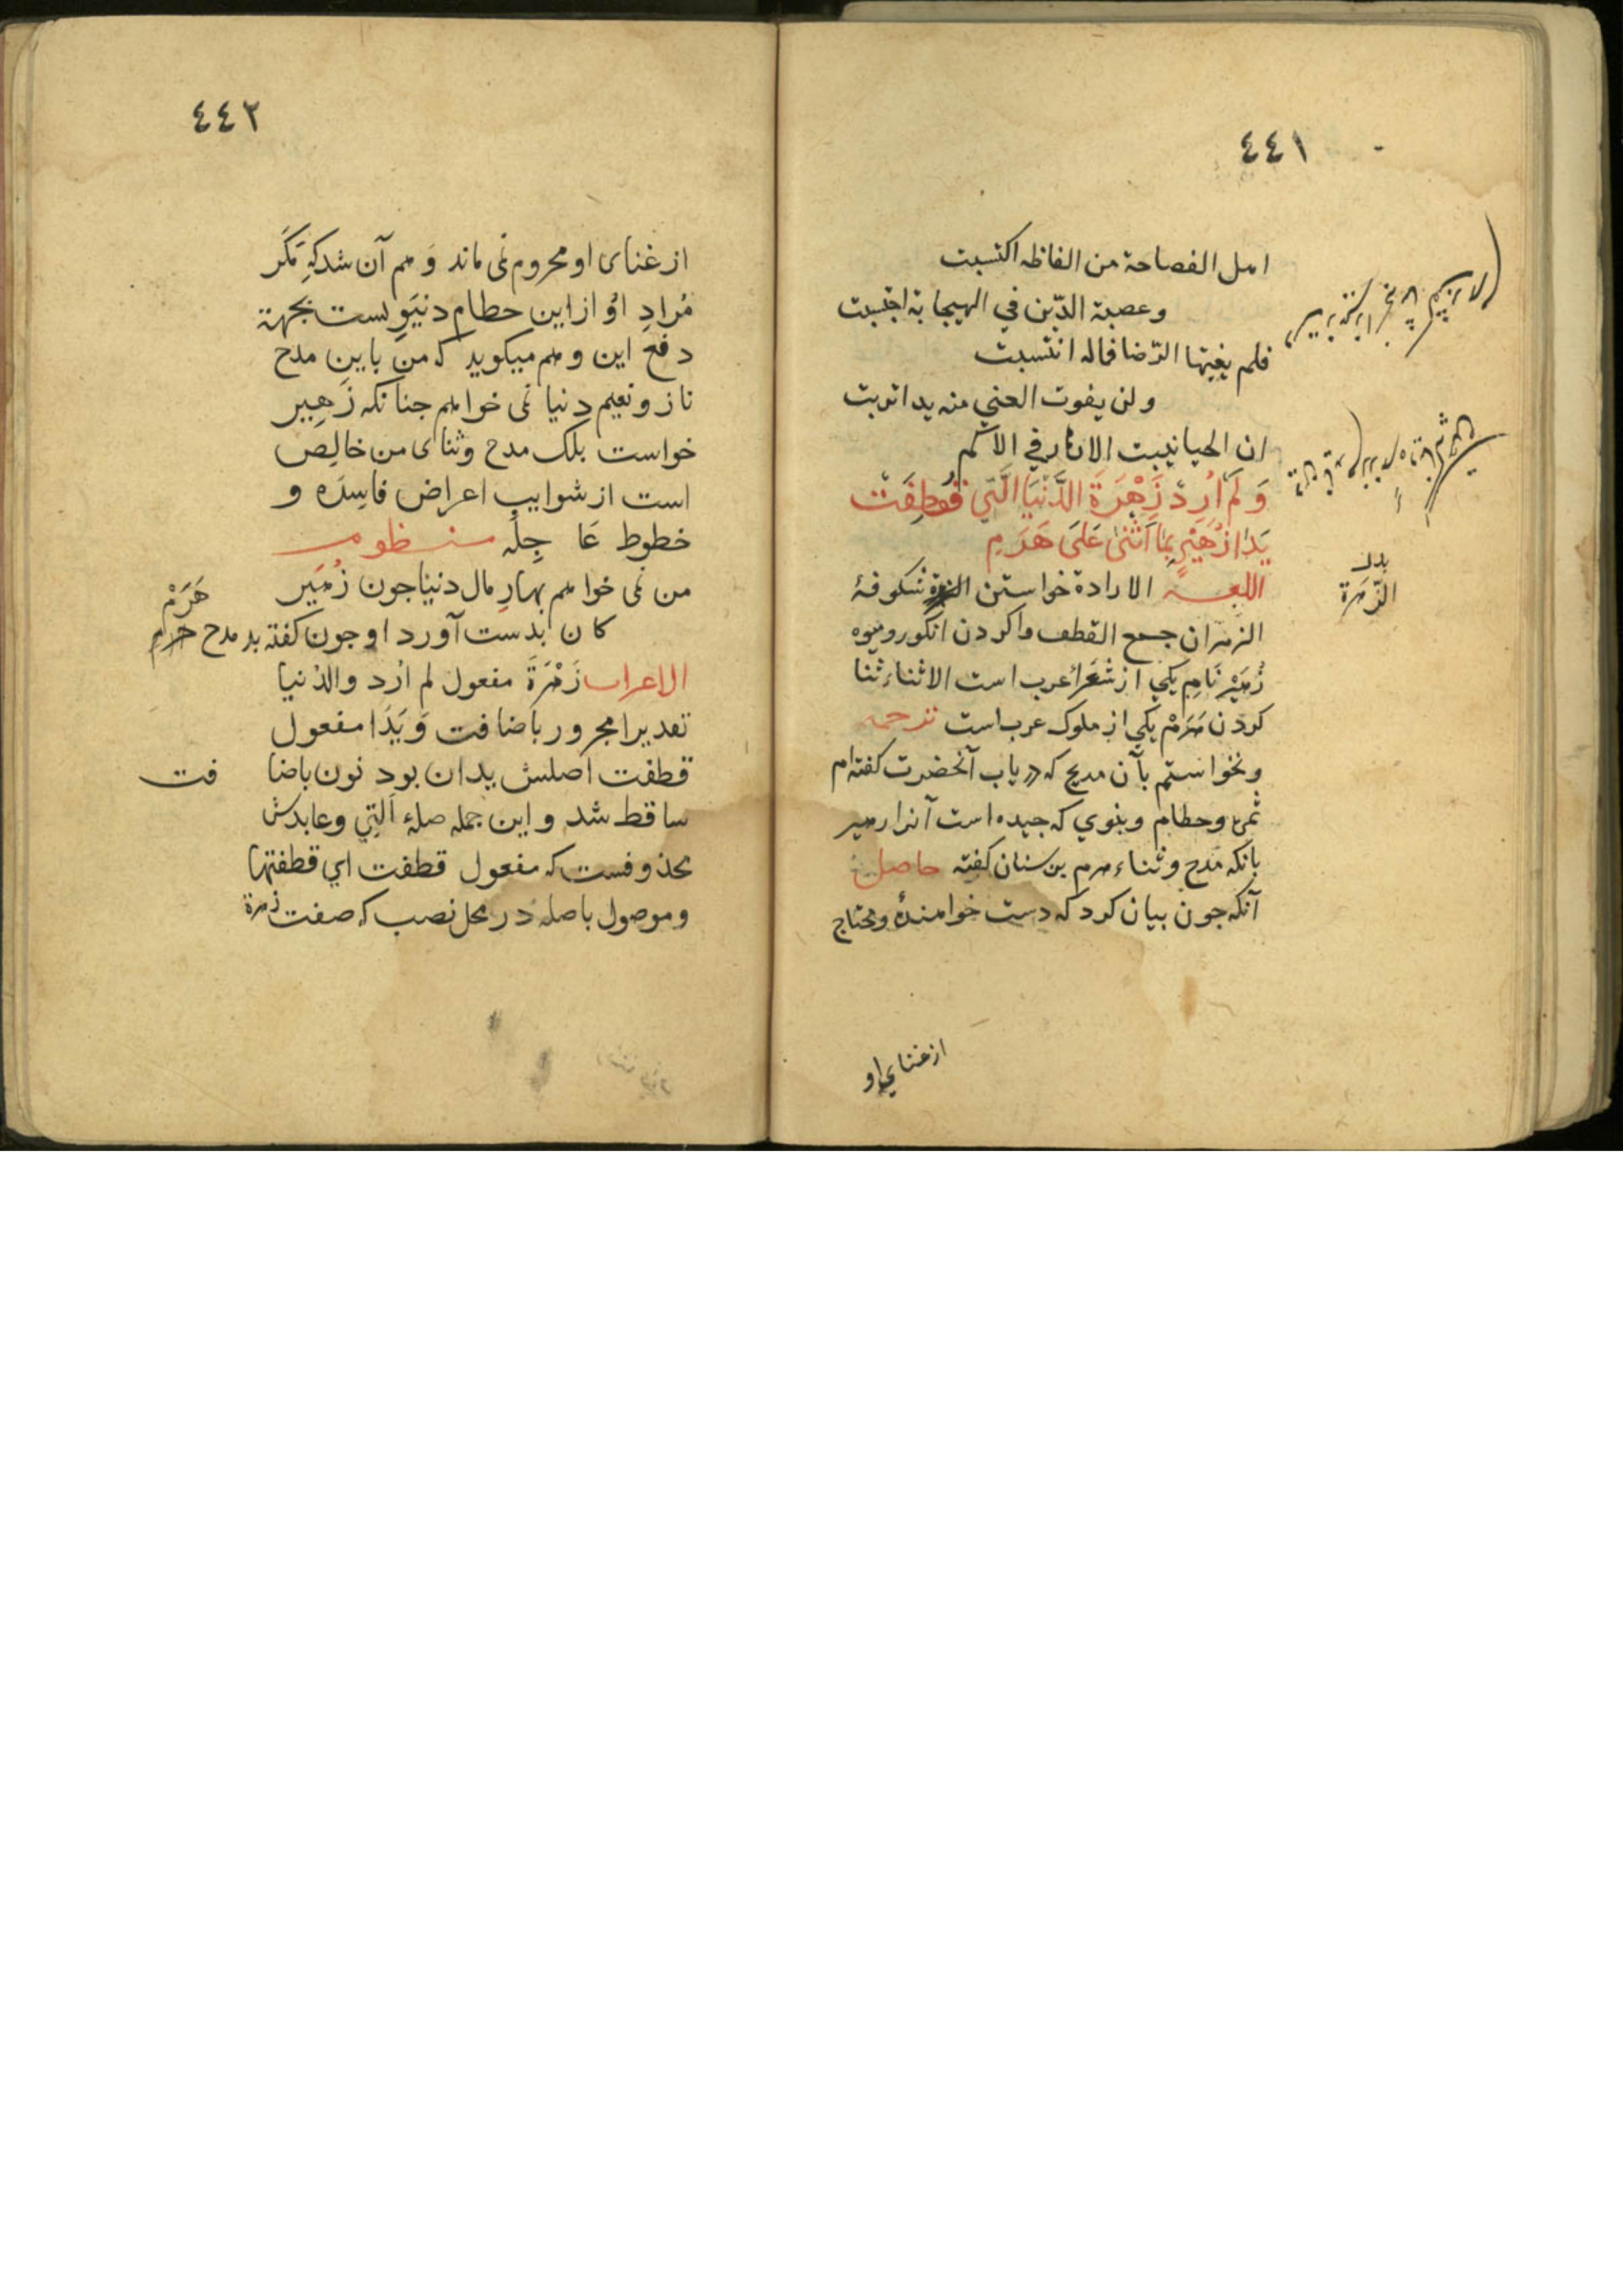 ٤٤١
اهل الفصاحة من الفاظه اكتسبت
وعصبة الدّين في الهيجا به اجتسبت
فلم يغيتها الرّضا فماله انتسبت
ولن يفوت الغني منه يدا تربت
ان الحيا ينبت الازهار في الاكم
وَلَمْ اُرِدْ زَهْرَةَ الدُّنْيَا الَّتِي قُطِفَتْ
يَدَا زُهَيْرٍ بِمَا اَثْنَى عَلَى هَرَمِ
بدل
الزّهرة
اللغــة الارادة خواستن شكوفهٔ
الزهران جمع القطف واكردن انگور وميوه
زُهَيْر نَامِ يكي از شُعَرَاُ عرب است الاثناء ثنا
كردن هَرَمْ يكي از ملوك عرب است ترجمه
ونخواستم بآن مديح كه در باب آنحضرت كفته ام
ثمرهٔ وحطام وينوي كه جيده است آنرا زهير
بانكه مدح وثناء هرم بن سنان كفته حاصل
آنكه جون بيان كرد كه دست خواهندهٔ ومحتاج
از غناي او
٤٤٢
از غناى او محروم نمى ماند وَهم آن شد كه مَگر
مُرادِ اوُ از اين حطام دنيَوِيست بجهة
دفع اين وهم ميكويد كه من باين مدح
ناز ونعيم دنيا نمى خواهم جنانكه زُهير
خواست بلكه مدح وثناى من خالِص
است از شوايب اعراض فاسِدَه و
خطوط عَا جِلَه منــظوم
من نمى خواهم بهارِ مال دنيا جون زُهَير
هَرَمْ
كان بدست آورد او جون كفته بد مدح هرم
الاعراب زَهْرَةَ مفعول لم ارُد والدُنيا
تقديرا مجرور باضافت وَيَدَا مفعول
قطفت اصلش يدان بود نون باضا فت
ساقط شد واين جمله صلهٔ اَلتِي وعايدش
محذوفست كه مفعول قطفت اي قطفتها
وموصول باصله در محل نصب كه صفت زهرة